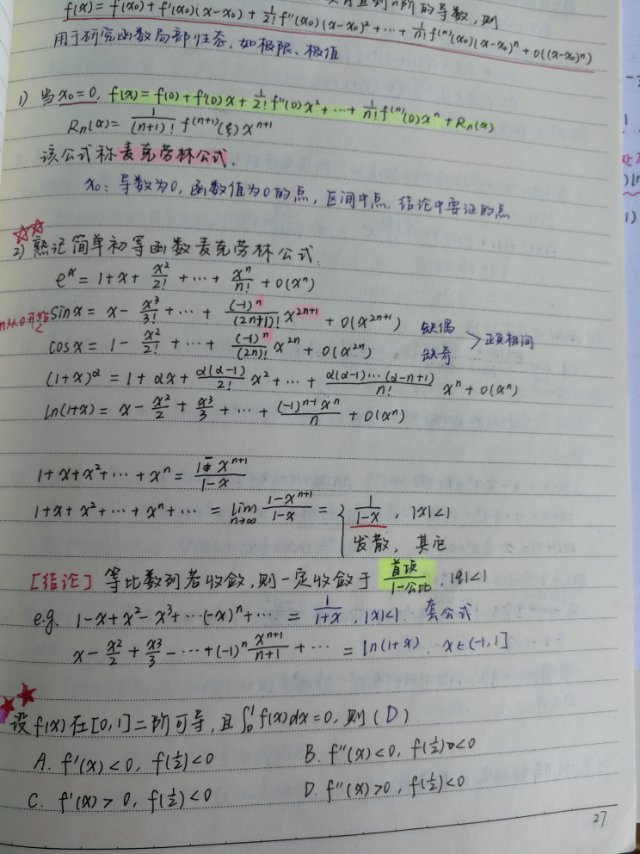 阶的导数, 则
f(x) = f(x₀) + f'(x₀)(x-x₀) + 1/2! f''(x₀)(x-x₀)² + ⋯ + 1/n! f⁽ⁿ⁾(x₀)(x-x₀)ⁿ + o((x-x₀)ⁿ)
用于研究函数局部性态, 如极限、极值
1) 当x₀=0, f(x) = f(0) + f'(0)x + 1/2! f''(0)x² + ⋯ + 1/n! f⁽ⁿ⁾(0)xⁿ + Rn(x)
Rn(x) = 1/(n+1)! f⁽ⁿ⁺¹⁾(ξ) xⁿ⁺¹
该公式称麦克劳林公式.
x₀: 导数为0, 函数值为0的点, 区间中点, 结论中要证的点
2) 熟记简单初等函数麦克劳林公式.
eˣ = 1 + x + x²/2! + ⋯ + xⁿ/n! + o(xⁿ)
n从0开始 sinx = x - x³/3! + ⋯ + (-1)ⁿ/(2n+1)! x²ⁿ⁺¹ + o(x²ⁿ⁺¹) 缺偶
cosx = 1 - x²/2 + ⋯ + (-1)ⁿ/(2n)! x²ⁿ + o(x²ⁿ) 缺奇 > 正负相间
(1+x)^α = 1 + αx + α(α-1)/2! x² + ⋯ + α(α-1)⋯(α-n+1)/n! xⁿ + o(xⁿ)
ln(1+x) = x - x²/2 + x³/3 + ⋯ + (-1)ⁿ⁻¹xⁿ/n + o(xⁿ)
1 + x + x² + ⋯ + xⁿ = 1-xⁿ⁺¹/1-x
1 + x + x² + ⋯ + xⁿ + ⋯ = lim n→∞ 1-xⁿ⁺¹/1-x = { 1/1-x , |x|<1
发散, 其它
[结论] 等比数列若收敛, 则一定收敛于 首项/1-公比, |q|<1
e.g. 1 - x + x² - x³ + ⋯ (-x)ⁿ + ⋯ = 1/1+x , |x|<1. 套公式
x - x²/2 + x³/3 - ⋯ + (-1)ⁿ xⁿ⁺¹/n+1 + ⋯ = ln(1+x). x∈(-1,1]
设f(x)在[0,1]二阶可导, 且∫₀¹ f(x)dx=0, 则 (D)
A. f'(x)<0, f(½)<0 B. f''(x)<0, f(½)<0
C. f'(x)>0, f(½)<0 D. f''(x)>0, f(½)<0
27